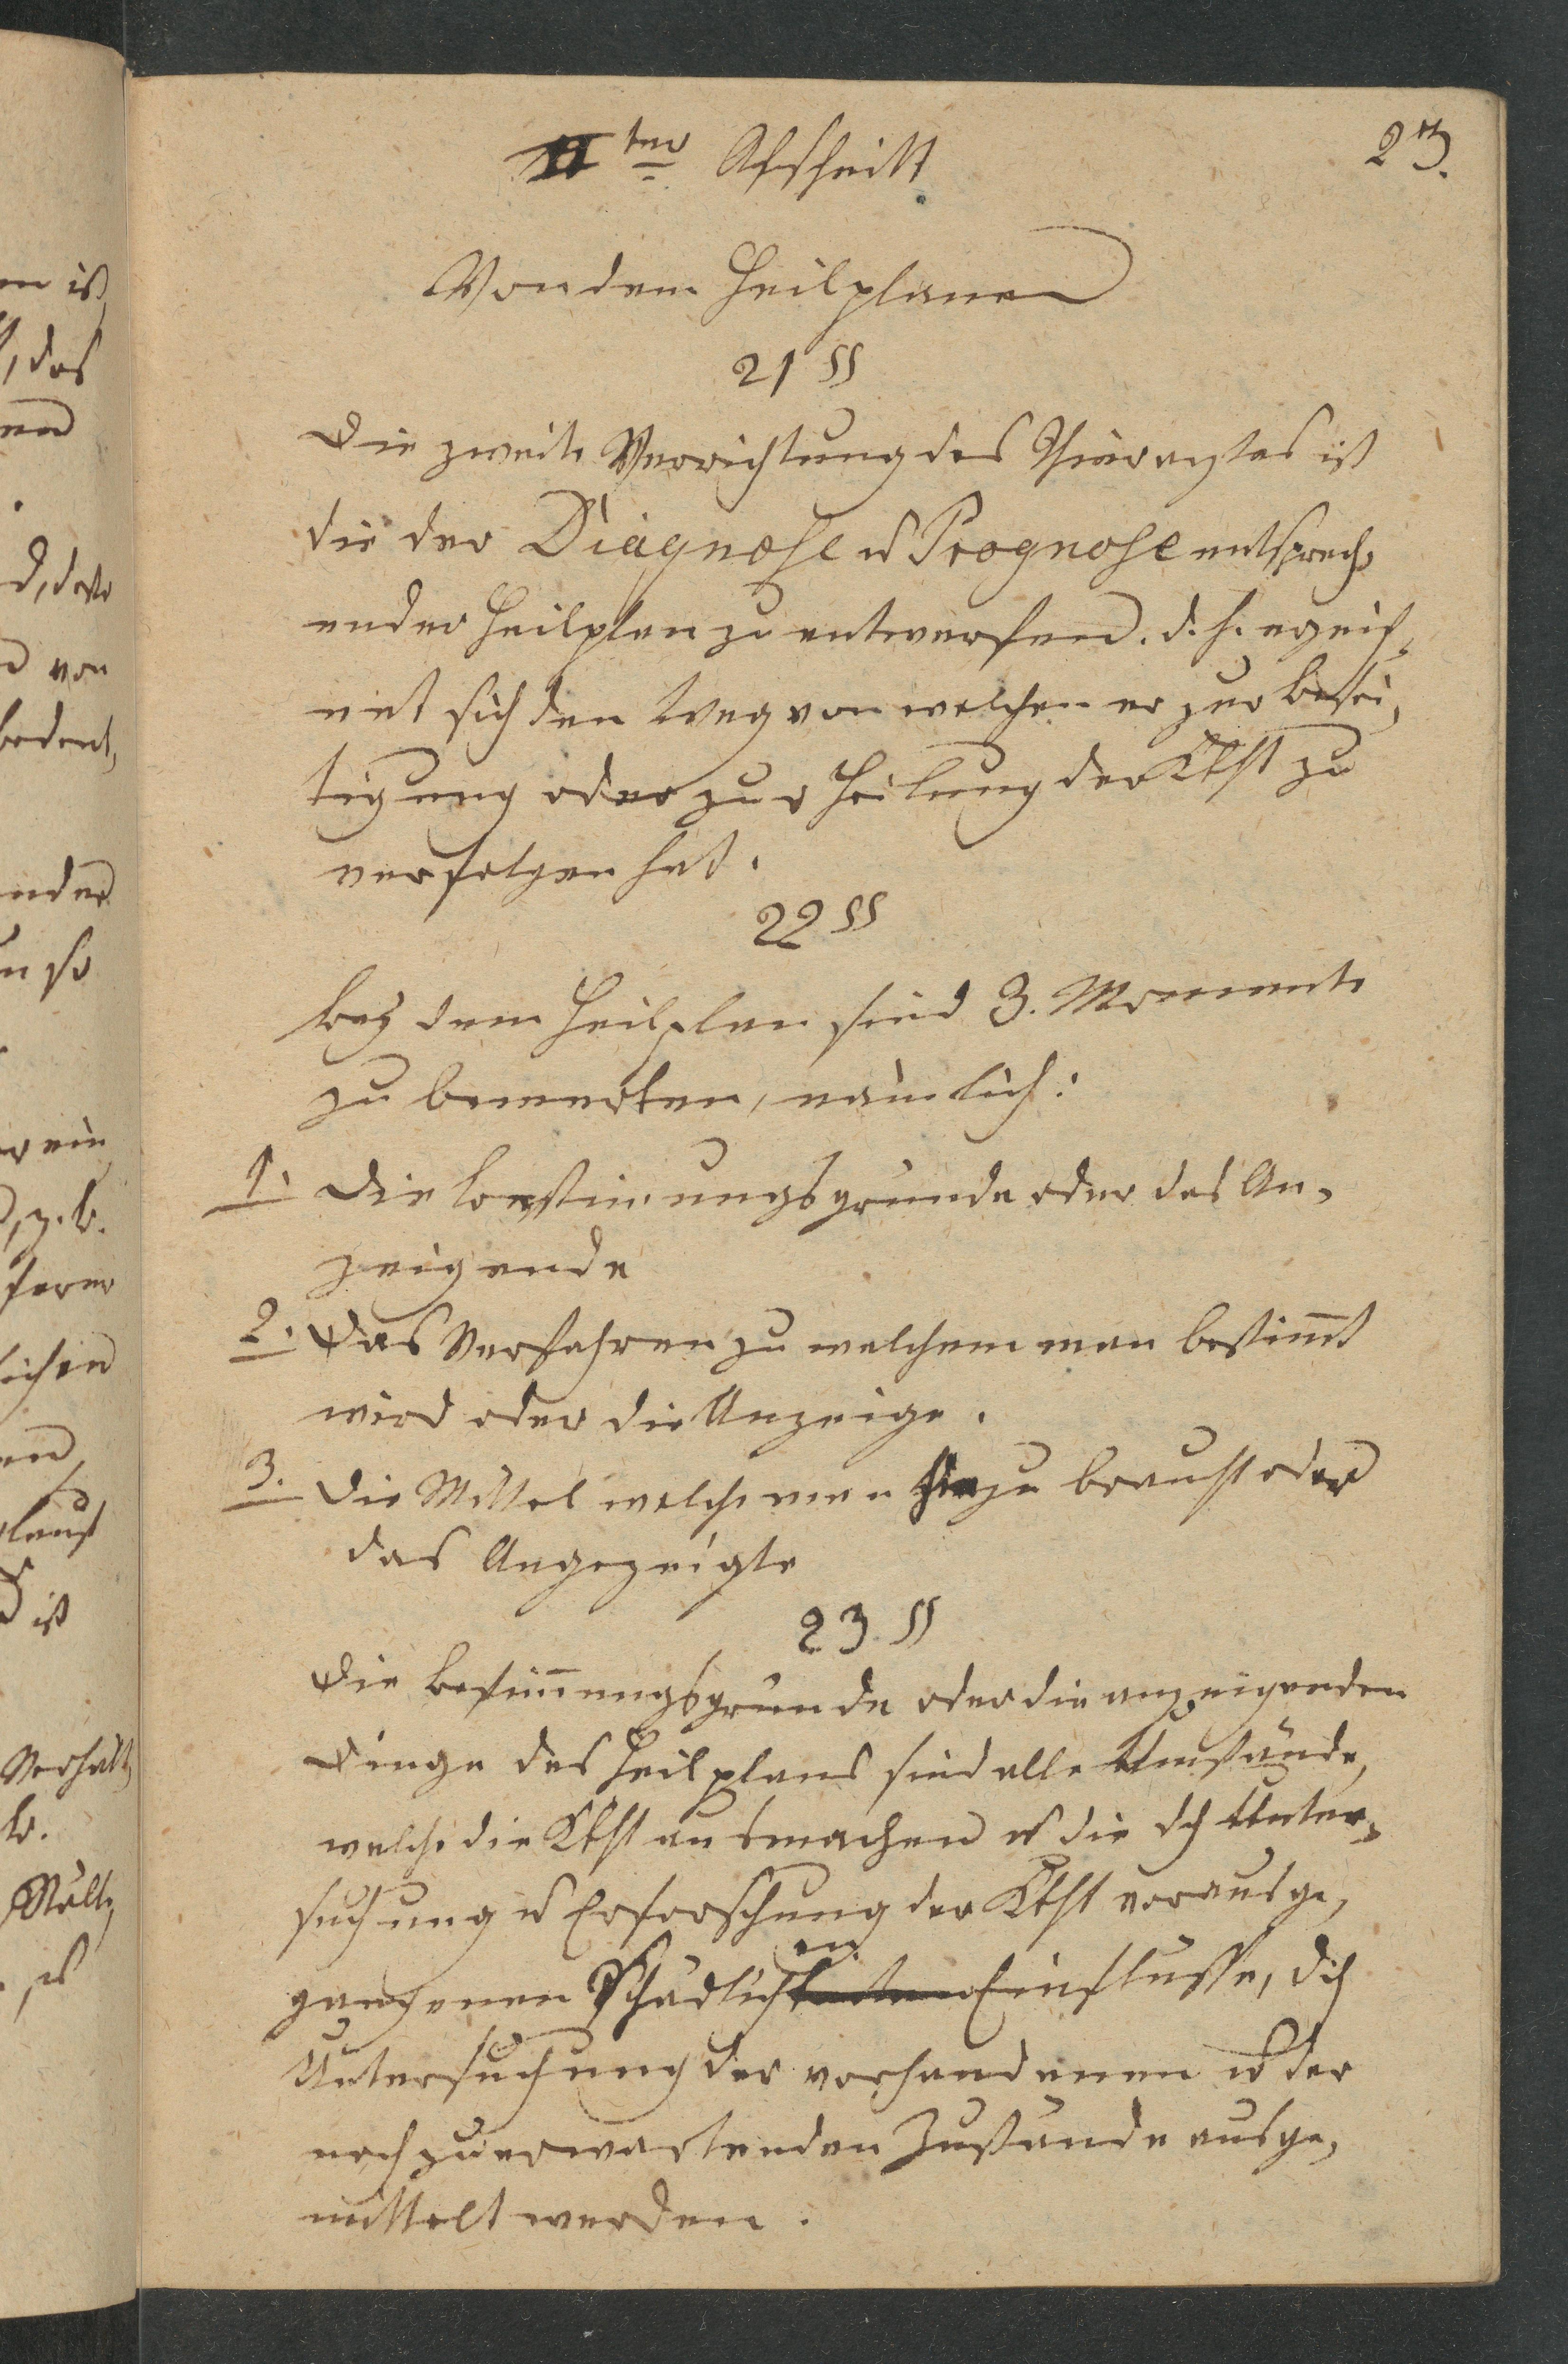 23.
IIter Abschnitt
Von dem Heilplane
21 §§
Die zweite Verrichtung des Thierarztes ist
die der Diagnose u Prognose entsprech-
ender Heilplan zu entwerfen. d. h. er zeich-
net sich den Weg von welchen er zur Besei-
tigung oder zur Heilung der Kkht zu
verfolgen hat.
22 §§
Bey dem Heilplan sind 3. Momente
zu bemerken, nämlich:
1. Die Bestimungsgründe oder das An-
zeigende
2. Das Verfahren zu welchem man bestimt
wird oder die Anzeige.
3. Die Mittel welche man hinzu braucht oder
das Angezeigte
23 §§
Die Bestimungsgründe oder die anzeigenden
Dinge des Heilplans sind alle Umstände,
welche die Kkht ausmachen u die dch Unter-
suchung u Erforschung der Kkht vorausge-
gangenen Schädlichen Einflusse, dch
Untersuchung der vorhandenen u der
noch zu erwartenden Zustände ausge-
mittelt werden.
en ist
, das
von
bedeut-
so
er ein
z. B.
lichen
ist
Verhält-